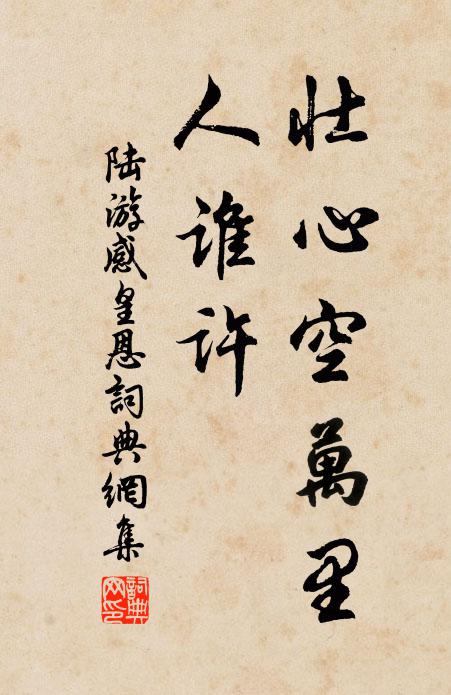 壮心空萬里
人誰許
陆游感皇恩詞典網集
詞典
网印